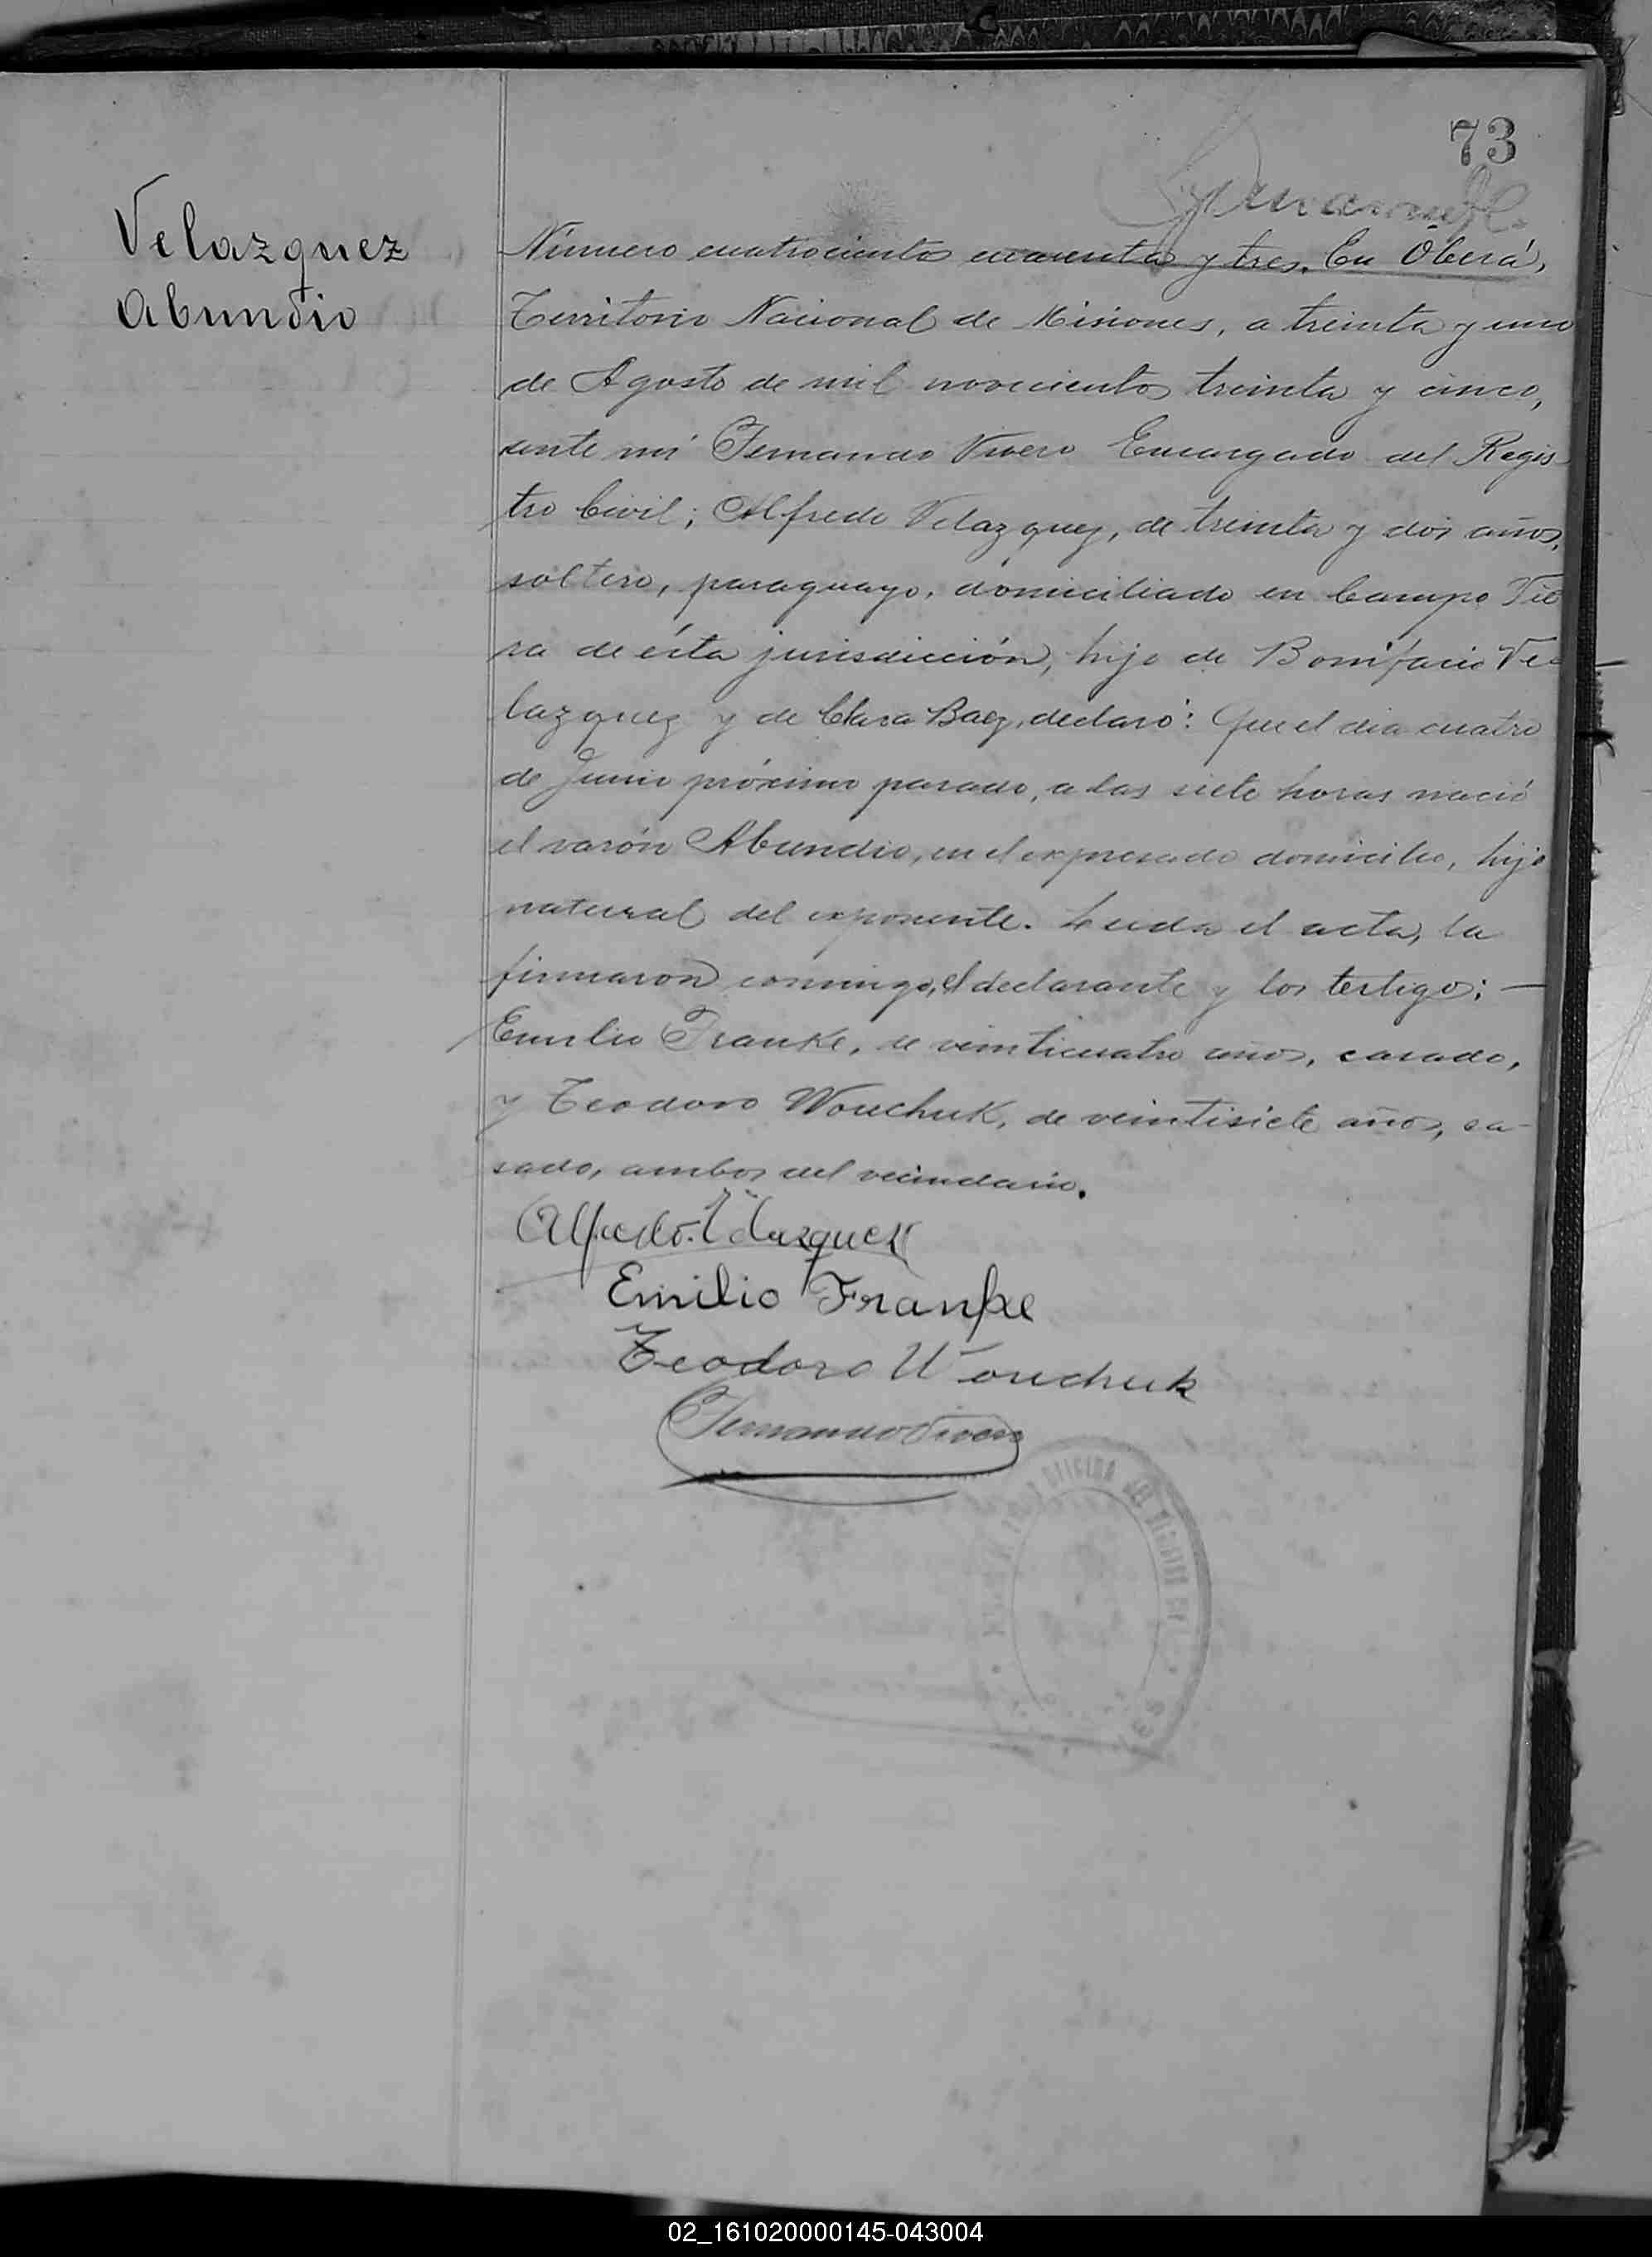 73
Velazquez
Abundio
Número cuatrocientos cuarenta y tres. En Oberá,
Territorio Nacional de Misiones, a treinta y uno
de Agosto de mil novecientos treinta y cinco,
ante mi Fernando Vivero Encargado del Regis
tro Civil; Alfredo Velazquez, de treinta y dos años,
soltero, paraguayo, domiciliado en Campo Vie
ra de ésta jurisdicción, hijo de Bonifacio Ve
lazquez y de Clara Baez, declaró: Que el dia cuatro
de Junio próximo pasado, a las siete horas nació
el varón Abundio, en el expresado domicilio, hijo
natural del exponente. Leida el acta, la
firmaron conmigo, el declarante y los testigos: —
Emilio Franke, de veinticuatro años, casado,
y Teodoro Wouchuk, de veintisiete años, ca-
sado, ambos del vecindario.
Alfredo Velazquez
Emilio Franke
Teodoro Wouchuk
Fernando Vivero
OFICINA DEL REGISTRO
02_161020000145-043004